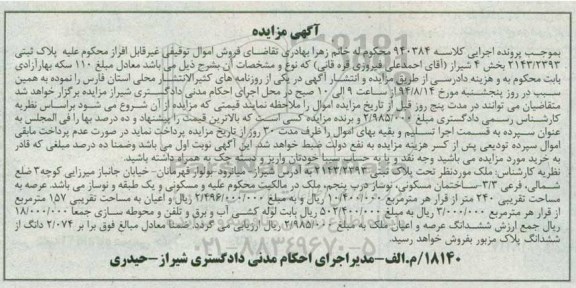 آگهی مزایده
بموجب پرونده اجرایی کلاسه ۹۴۰۳۸۴ محکوم له خانم زهرا بهادری تقاضای فروش اموال توقیفی غیرقابل افراز محکوم علیه پلاک ثبتی
۲۱۴۳/۲۳۹۳ بخش ۴ شیراز (آقای احمدعلی فیروزی قره قانی) که نوع و مشخصات آن بشرح ذیل می باشد معادل مبلغ ۱۱۰ سکه بهارآزادی
بابت محکوم به و هزینه دادرسی از طریق مزایده و انتشار آگهی در یکی از روزنامه های کثیرالانتشار محلی استان فارس را نموده به همین
سبب در روز پنجشنبه مورخ ۹۴/۸/۱۴ از ساعت ۹ الی ۱۰ صبح در محل اجرای احکام مدنی دادگستری شیراز مزایده برگزار خواهد شد
متقاضیان می توانند در مدت پنج روز قبل از تاریخ مزایده اموال را ملاحظه نمایند قیمتی که مزایده از آن شروع می شود براساس نظریه
کارشناس رسمی دادگستری مبلغ ۲/۹۸۵/۰۰۰/۰۰۰ و برنده مزایده کسی است که بالاترین قیمت را پیشنهاد و ده درصد بها را فی المجلس به
عنوان سپرده به قسمت اجرا تسلیم و بقیه بهای اموال را ظرف مدت ۳۰ روز از تاریخ مزایده پرداخت نماید در صورت عدم پرداخت مابقی
اموال سپرده تودیعی پس از کسر هزینه مزایده به نفع دولت ضبط خواهد شد این آگهی نوبت اول می باشد وضمنا ده درصد مبلغی که قادر
به خرید مورد مزایده می باشید وجه نقد و یا به حساب سیبا خودتان واریز و دسته چک به همراه داشته باشید.
نظریه کارشناس: ملک موردنظر تحت پلاک ثبتی ۲۱۴۳/۲۳۹۳ به آدرس شیراز- میانرود- بولوار قهرمانان- خیابان جانباز میرزایی کوچه ۳ ضلع
شمالی، فرعی ۳/۳-ساختمان مسکونی، نوساز درب پنجم، ملک در مالکیت محکوم علیه و مسکونی و یک طبقه و نوساز می باشد. عرصه به
مساحت تقریبی ۲۴۰ متر از قرار هر مترمربع ۱۰/۴۰۰/۰۰۰ ریال و به مبلغ ۲/۴۹۶/۰۰۰/۰۰۰ ریال و اعیان به مساحت تقریبی ۱۵۷ مترمربع
از قرار هر مترمربع ۳/۰۰۰/۰۰۰ ریال به مبلغ ۵۰۲/۴۰۰/۰۰۰ ریال بابت لوله کشی آب و برق و تلفن و محوطه سازی جمعا ۱۸/۰۰۰/۰۰۰
ریال جمع ارزش ششدانگ عرصه و اعیان ملک به مبلغ ۲/۹۸۵/۰۰۰/۰۰۰ ریال ارزیابی می گردد. ضمنا معادل مبالغ فوق برا بر ۲/۰۷۴ دانگ از
ششدانگ پلاک مزبور بفروش خواهد رسید.
۱۸۱۴۰/م.الف-مدیراجرای احکام مدنی دادگستری شیراز-حیدری
۰۲۱-۸۸۳۴۹۶۷۰-۵